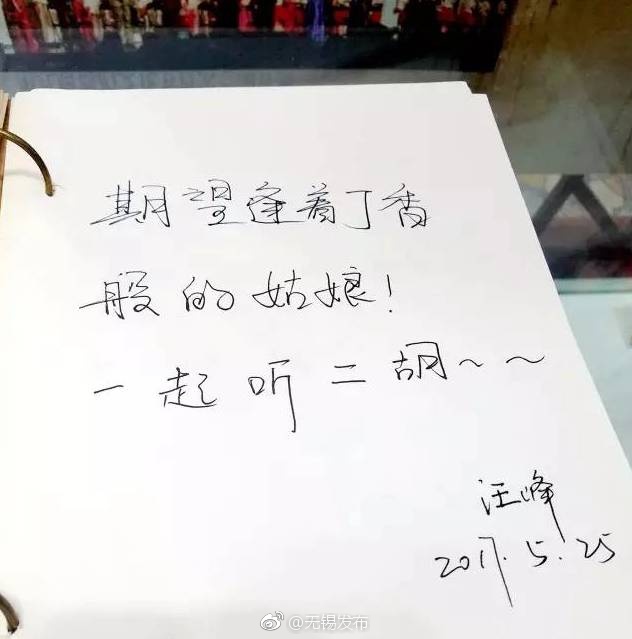 期望逢着丁香
般的姑娘!
一起听二胡~~
汪峰
2017.5.25
@无锡发布